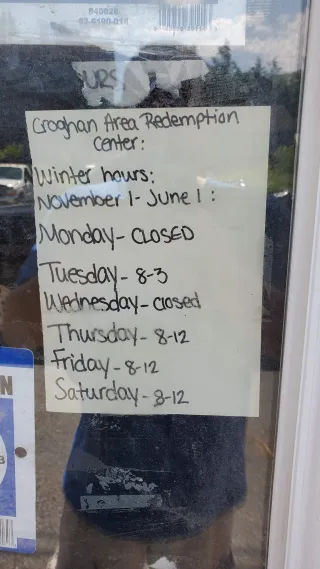 Croghan Area Redemption
Center:
Winter hours:
November 1- June 1:
Monday- CLOSED
Tuesday- 8-3
Wednesday- closed
Thursday- 8-12
Friday- 8-12
Saturday- 8-12